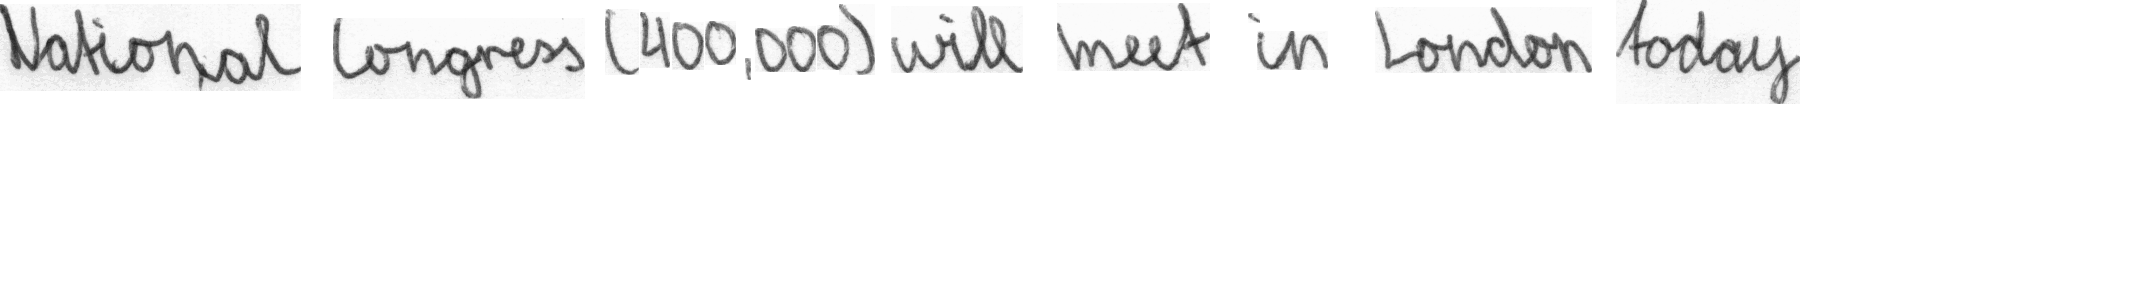 National Congress (400,000) will meet in London today